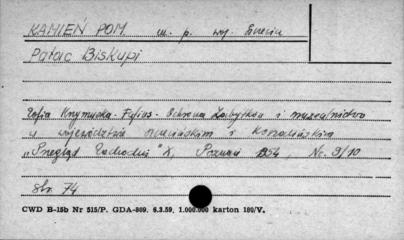 KAMIEŃ POM. m. p. woj. Szczecin
Pałac Biskupi
Zofia Krzymuska-Fafius - Ochrona Zabytków i muzealnictwo
w województwie szczecińskim i koszalińskim
„Przegląd Zachodni" X, Poznań 1954, Nr. 9/10
str. 74
CWD B-15b Nr 515/P. GDA-809. 6.3.59. 1.000.000 karton 180/V.